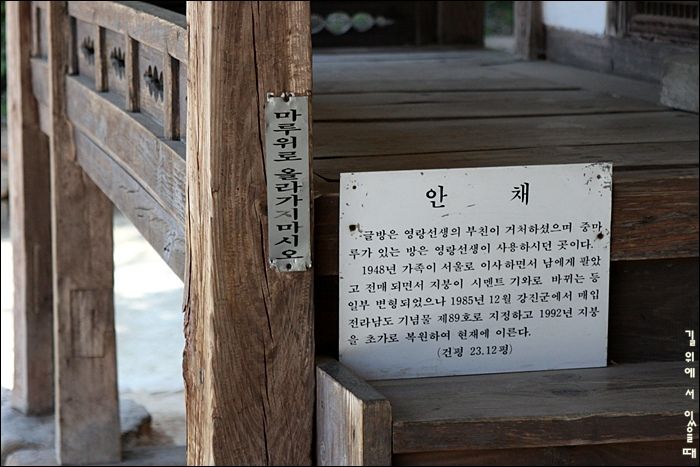 마루위로 올라가지마시오
안 채
글방은 영랑선생의 부친이 거처하셨으며 중마
루가 있는 방은 영랑선생이 사용하시던 곳이다.
1948년 가족이 서울로 이사하면서 남에게 팔았
고 전매 되면서 지붕이 시멘트 기와로 바뀌는 등
일부 변형되었으나 1985년 12월 강진군에서 매입
전라남도 기념물 제89호로 지정하고 1992년 지붕
을 초가로 복원하여 현재에 이른다.
(건평 23.12평)
길 위에 서 있을 때